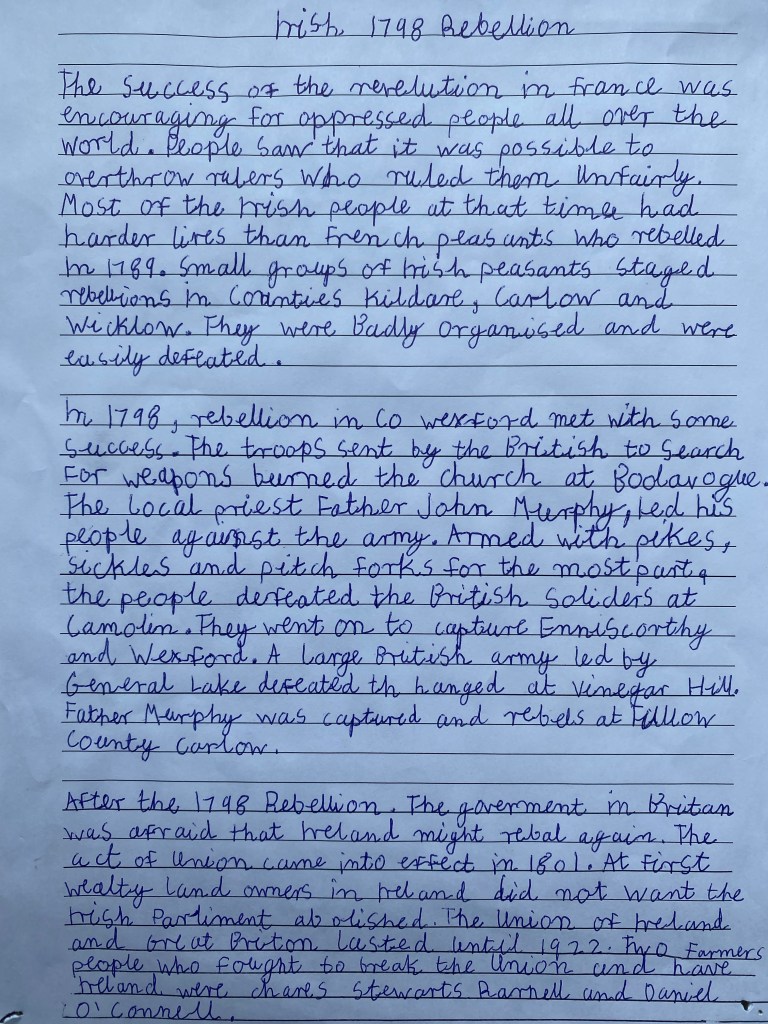 Irish 1798 Rebellion
The Success of the revelution in france was
encouraging for oppressed people all over the
world. People saw that it was possible to
overthrow rulers who ruled them unfairly.
Most of the Irish people at that time had
harder lives than French peasants who rebelled
In 1789. Small groups of Irish peasants staged
rebellions in Counties Kildare, Carlow and
Wicklow. They were Badly organised and were
easily defeated.
In 1798, rebellion in Co wexford met with some
success. The troops sent by the British to search
For weapons burned the church at Boolavogue.
The local priest Father John Murphy, led his
people against the army. Armed with pikes,
sickles and pitch forks for the most part,
the people defeated the British soliders at
Camolin. They went on to capture Enniscorthy
and Wexford. A large British army led by
General Lake defeated th hanged at Vinegar Hill.
Father Murphy was captured and rebels at
County Carlow.
After the 1798 Rebellion. The goverment in Britan
was afraid that Ireland might rebal again. The
act of Union came into effect in 1801. At first
wealty land owners in Ireland did not want the
Irish Parliment abolished. The Union of Ireland
and Great Briton lasted until 1922. Two Farmers
people who fought to break the Union and have
Ireland were chares Stewarts Parnell and Daniel
O'Connell.